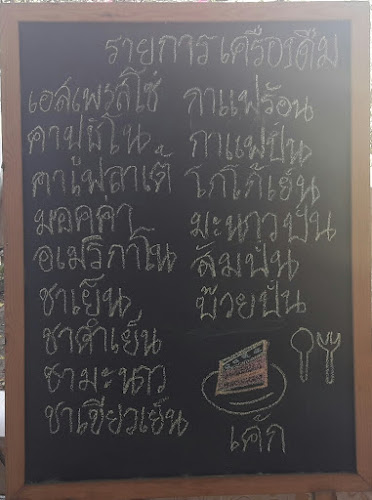 รายการเครื่องดื่ม
เอสเพรสโซ่ กาแฟร้อน
คาปูชิโน กาแฟปั่น
คาเฟ่ลาเต้ โกโก้เย็น
มอคค่า มะนาวปั่น
อเมริกาโน ส้มปั่น
ชาเย็น บ๊วยปั่น
ชาดำเย็น
ชามะนาว
ชาเขียวเย็น เค้ก